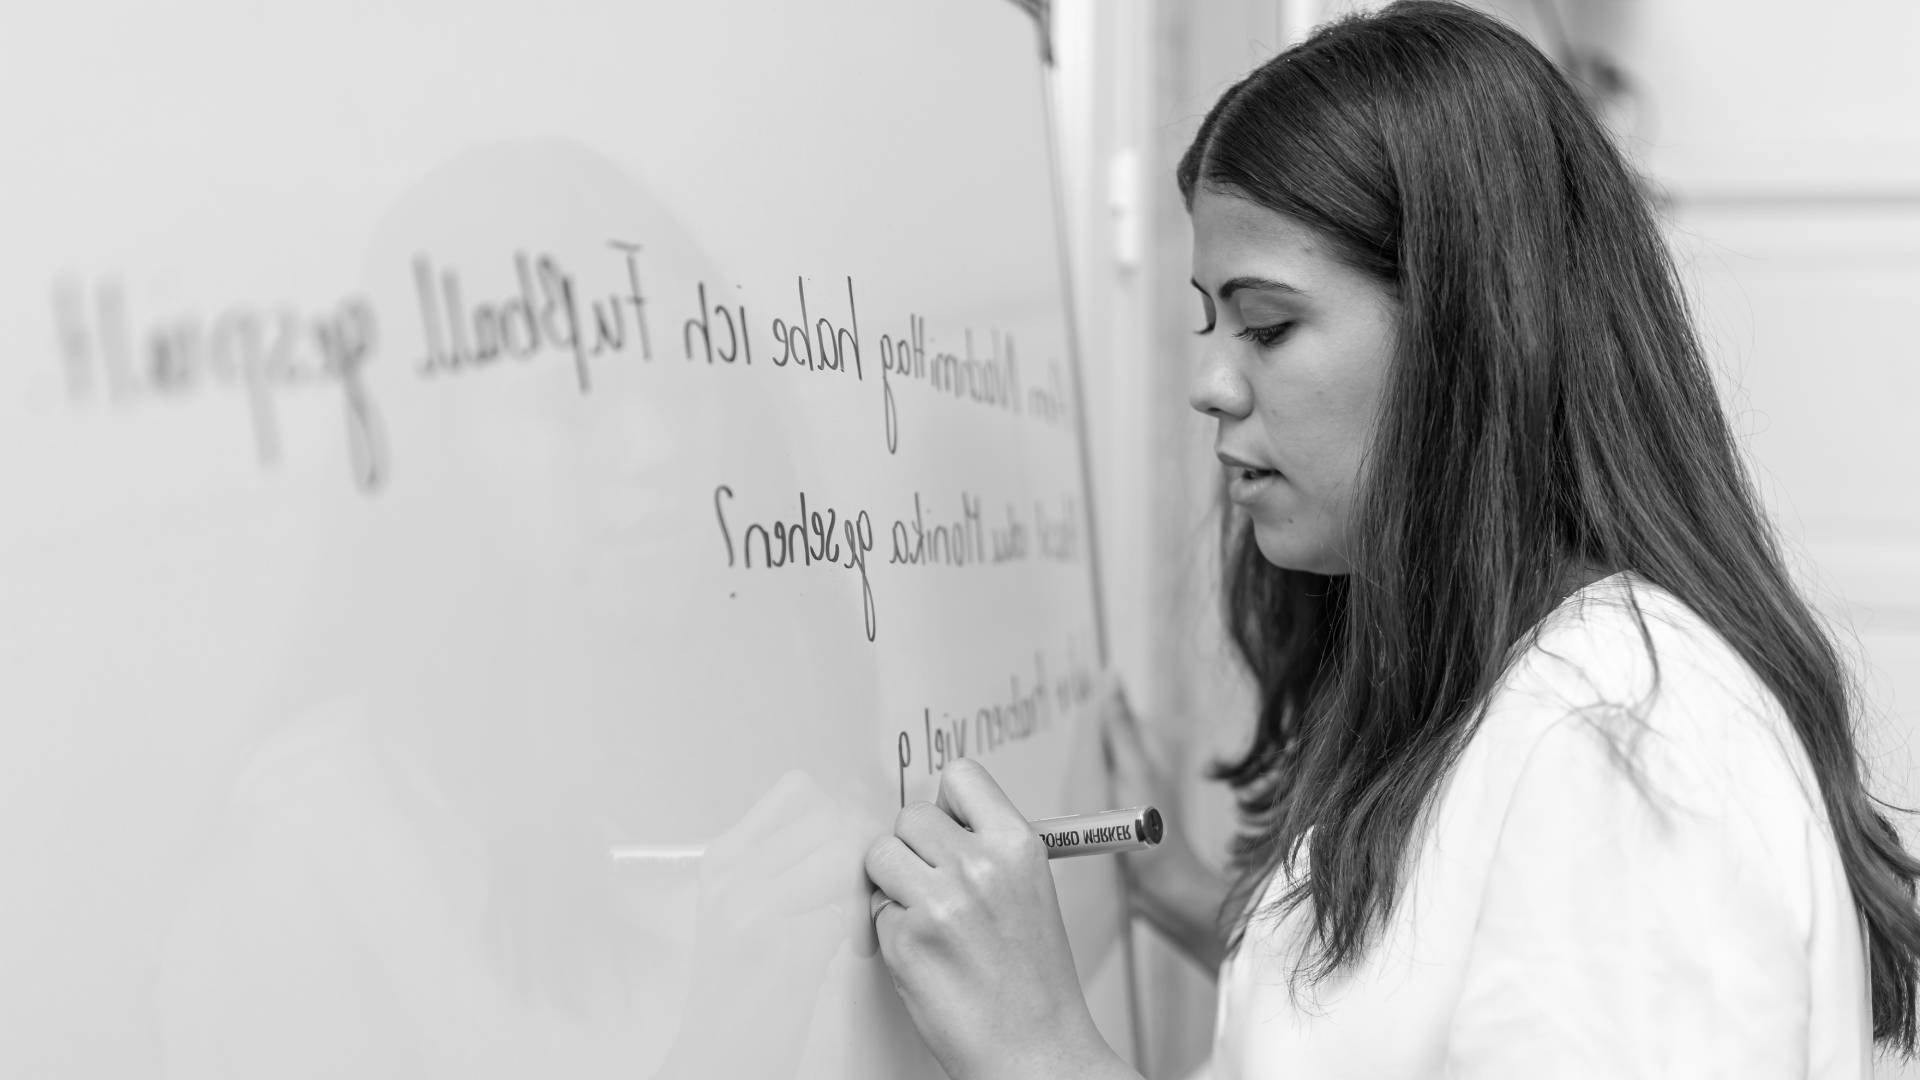 Am Nachmittag habe ich Fußball gespielt
Hast du Monika gesehen?
Wir haben viel g
BOARD MARKER